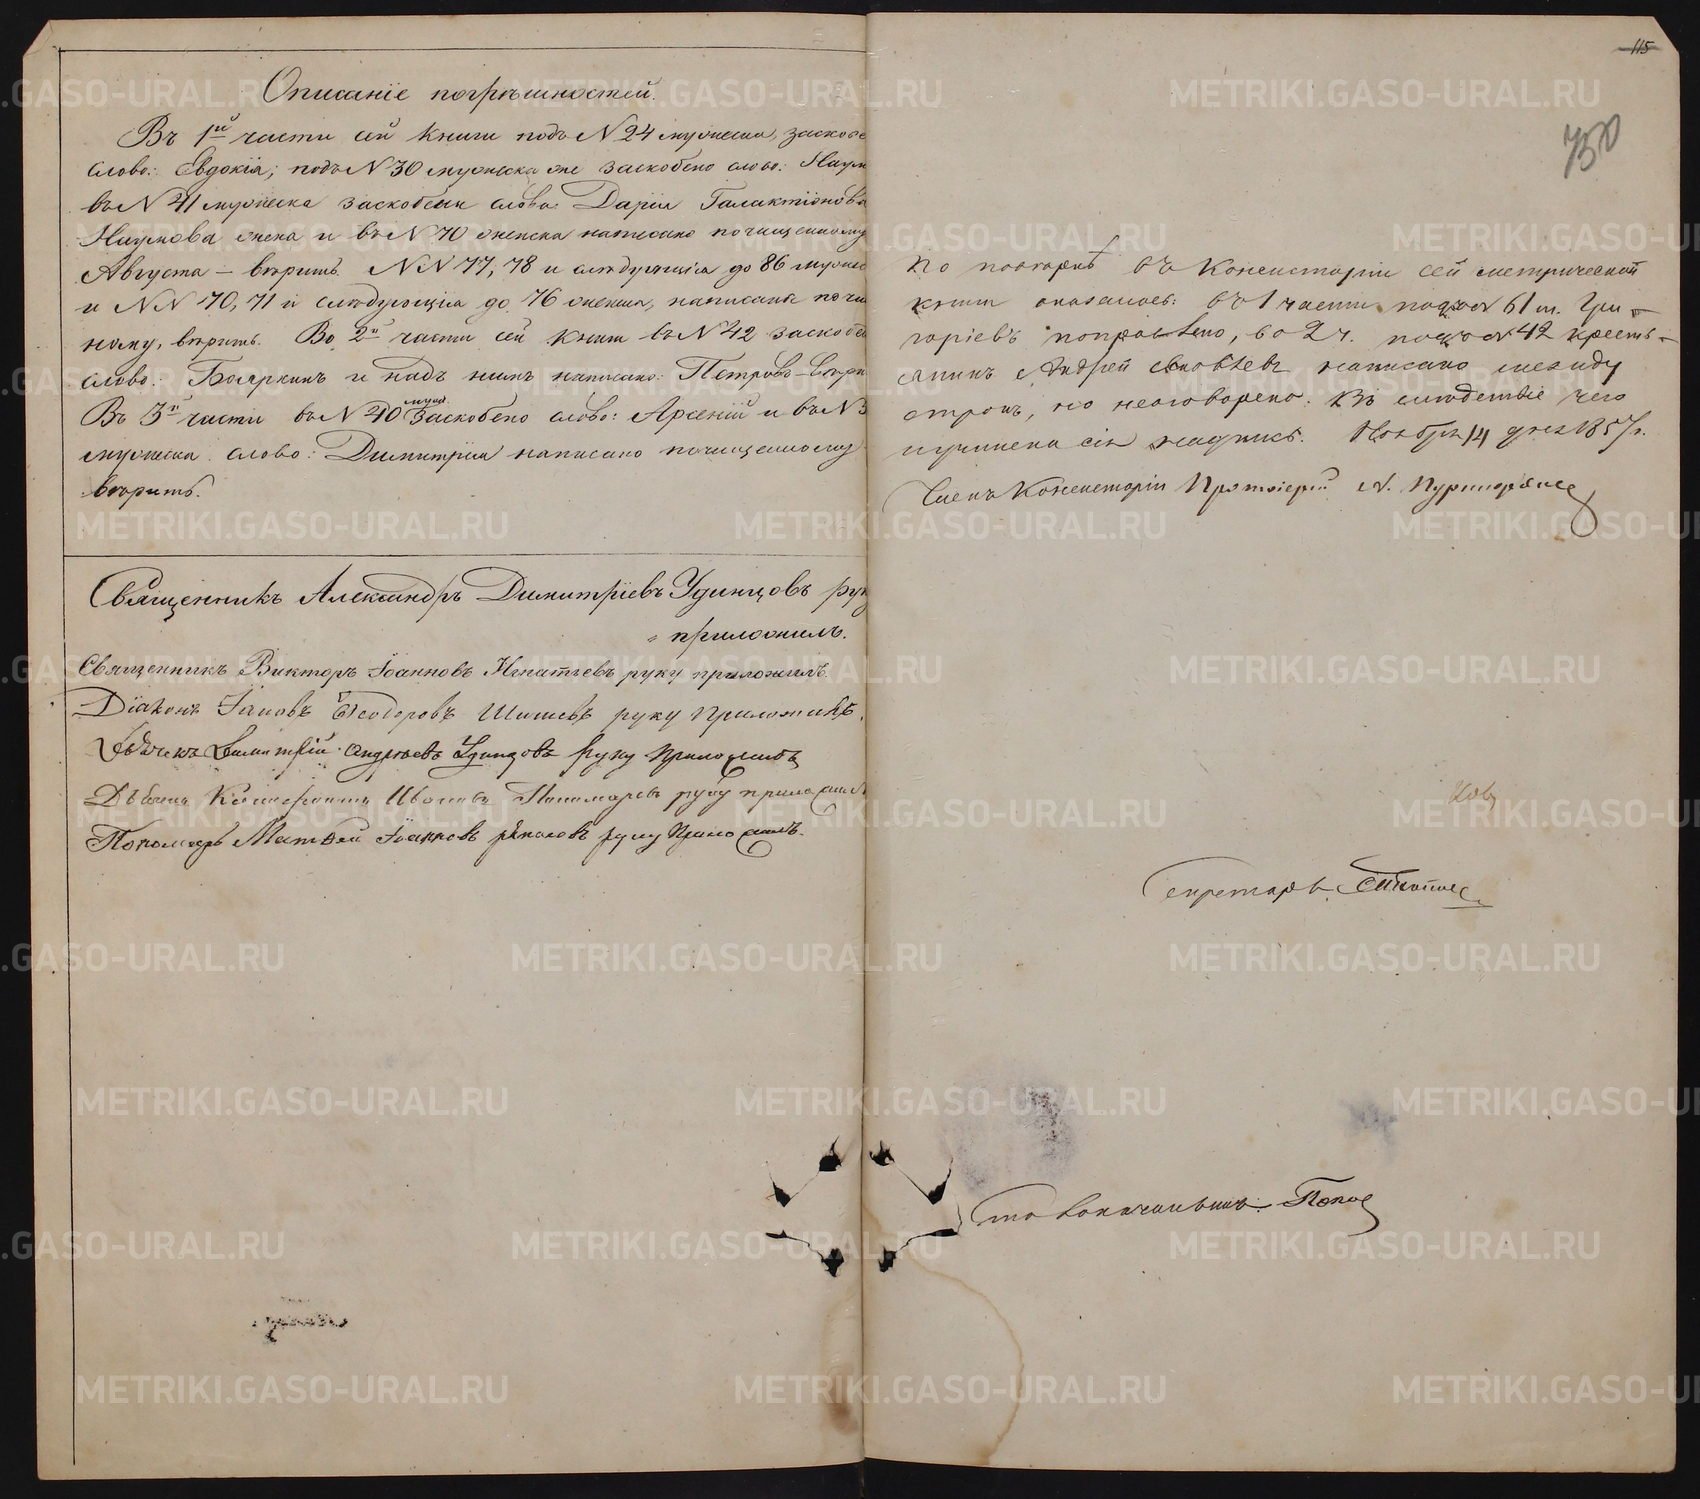 Описаніе погрѣшностей.
Въ 1й части сей книги подъ N 24 мужеска, заскобе
слово: Евдокія; подъ N 30 мужеска же заскоблено слово: Наум
въ N 41 мужеска заскоблены слова: Дарія Галактіонова
Наумова жена и въ N 70 женска написано по чищенному
Августа – вѣрить. NN 77, 78 и слѣдующія до 86 мужес
и NN 70, 71 и слѣдующія до 76 женска, написаны по чи
ному, вѣрить. Во 2й части сей книги въ N 42 заскобле
слово: Бояркинъ и надъ нимъ написано: Петрово – вѣри
Въ 3й части въ N 40 муж. заскоблено слово: Арсеній и въ N 3
мужеска слово: Димитрія написано по чищенному
вѣрить.
Священникъ Александръ Димитріевъ Удинцовъ рук
приложилъ.
Священникъ Викторъ Іоанновъ Игнатьевъ руку приложилъ.
Діаконъ Іаковъ Ѳеодоровъ Шишевъ руку приложилъ.
Димитрій Андреевъ Удинцовъ руку приложилъ
Дьячекъ Ксенофонтъ Ивановъ Пономаревъ руку приложилъ
Пономарь Матвей Іоанновъ руку приложилъ.
115
730
По повѣркѣ въ Консисторіи сей метрической
книги оказалось: въ 1 части подъ N 61 м. Гри-
горіевъ поправлено, во 2 ч. подъ N 42 кресть-
янинъ Андрей Яковлевъ написано между
строкъ, но неоговорено. Въ слѣдствіе чего
учинена сія надпись. Ноября 14 дня 1857 г.
Членъ Консисторіи Протоіерей
Секретарь
Столоначальникъ Попов
METRIKI.GASO-URAL.RU